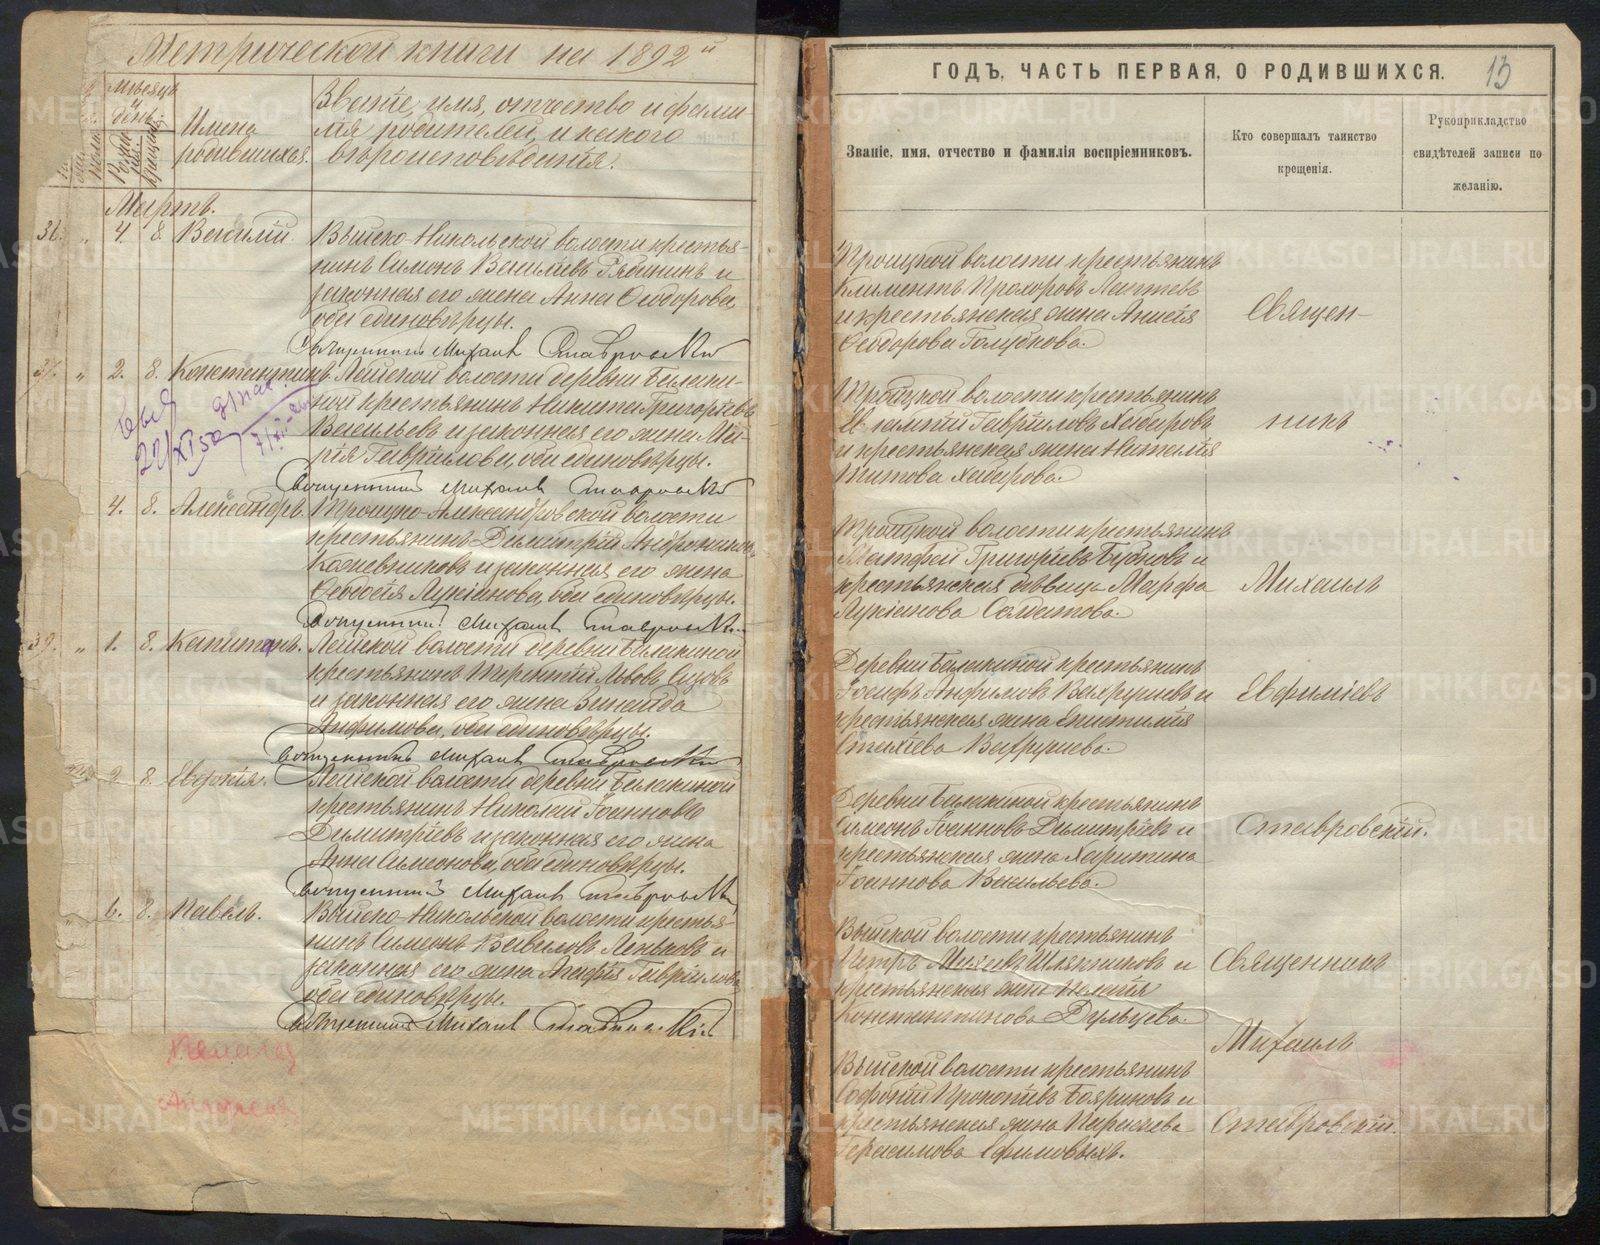 Метрической книги на 1892й
Мѣсяцъ
и день.
Имена
родившихся.
Званіе, имя, отчество и фами-
лія родителей, и какого
вѣроисповѣданія.
Мартъ.
4. 8. Василій. Выйско-Никольской волости крестья-
нинъ Симонъ Василіевъ Рябининъ и
законная его жена Анна Ѳеодорова,
оба единовѣрцы.
Священникъ Михаилъ Ставровскій
37. " 2. 8. Константинъ. волости деревни Балаки-
ной крестьянинъ Никита Григоріевъ
Васильевъ и законная его жена Ма-
рія Гавріилова, оба единовѣрцы.
Священникъ Михаилъ Ставровскій
4. 8. Александръ. Троицко-Александровской волости
крестьянинъ Димитрій Андрониковъ
Кожевниковъ и законная его жена
Ѳеодосія Лукіанова, оба единовѣрцы.
Священникъ Михаилъ Ставровскій
39. " 1. 8. Капитонъ. волости деревни Балакиной
крестьянинъ Терентій Львовъ Сизовъ
и законная его жена Зинаида
Анфимова, оба единовѣрцы.
Священникъ Михаилъ Ставровскій
2. 8. Евдокія. волости деревни Балакиной
крестьянинъ Николай Іоанновъ
Димитріевъ и законная его жена
Анна Симеонова, оба единовѣрцы.
Священникъ Михаилъ Ставровскій
6. 8. Павелъ. Выйско-Никольской волости крестья-
нинъ Симонъ Вавиловъ Леньковъ и
законная его жена Агафія Гавріилова,
оба единовѣрцы.
Священникъ Михаилъ Ставровскій
ГОДЪ, ЧАСТЬ ПЕРВАЯ, О РОДИВШИХСЯ. 13
Званіе, имя, отчество и фамилія воспріемниковъ.
Кто совершалъ таинство
крещенія.
Рукоприкладство
свидѣтелей записи по
желанію.
Троицкой волости крестьянинъ
Климентъ Прохоровъ Лаптевъ
и крестьянская жена Анисія
Ѳеодорова Голубкова.
Троицкой волости крестьянинъ
Игнатій Гавріиловъ Хабаровъ
и крестьянская жена Наталія
Титова Хабарова.
Троицкой волости крестьянинъ
Матфей Григоріевъ Бубновъ и
крестьянская дѣвица Марфа
Лукіанова Солдатова.
Деревни Балакиной крестьянинъ
Іосифъ Анфимовъ Вахрушевъ и
крестьянская жена Епистимія
Стахіева Вахрушева.
Деревни Балакиной крестьянинъ
Симеонъ Іоанновъ Димитріевъ и
крестьянская жена Харитина
Іоаннова Васильева.
Выйской волости крестьянинъ
Петръ Михеевъ Шляпниковъ и
крестьянская жена Пелагія
Константинова Дульцева.
Выйской волости крестьянинъ
Софоній Прокопіевъ Бояриновъ и
крестьянская жена Параскева
Герасимова Ефимовыхъ.
Священ-
никъ
Михаилъ
Евфиміевъ
Ставровскій.
Священникъ
Михаилъ
Ставровскій.
METRIKI.GASO-URAL.RU